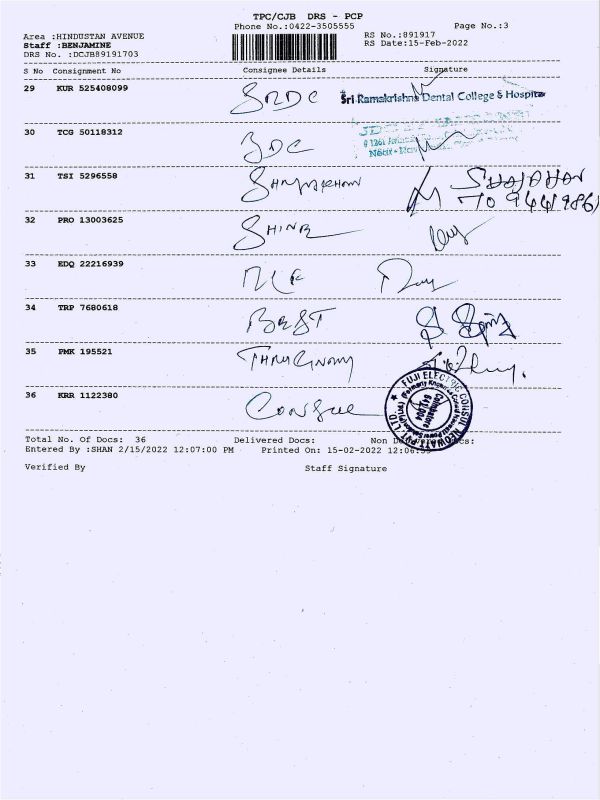 TPC/CJB DRS - PCP
Phone No.:0422-3505555 Page No.:3
Area :HINDUSTAN AVENUE RS No.:891917
Staff :BENJAMINE RS Date:15-Feb-2022
DRS No. :DCJB89191703
S No Consignment No Consignee Details Signature
29 KUR 525408099 SRDC Sri Ramakrishna Dental College & Hospital
30 TCG 50118312
31 TSI 5296558
32 PRO 13003625 SHINE
33 EDQ 22216939
34 TRP 7680618 BEST
35 PMK 195521
36 KRR 1122380 CONSUL
FUJI ELECTRIC CONSUL NEOWATT PVT. LTD.
Coimbatore
641 004
Total No. Of Docs: 36 Delivered Docs: Non Docs:
Entered By :SHAN 2/15/2022 12:07:00 PM Printed On: 15-02-2022 12:06:
Verified By Staff Signature